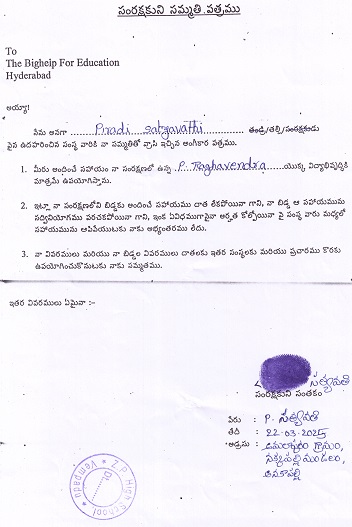 సంరక్షకుని సమ్మతి పత్రము
To
The Bighelp For Education
Hyderabad
అయ్యా!
నేను అనగా Pradi Satyavathi తండ్రి/తల్లి/సంరక్షకుడు
పైన ఉదహరించిన సంస్థ వారికి నా సమ్మతితో వ్రాసి ఇచ్చిన అంగీకార పత్రము.
1. మీరు అందించే సహాయం నా సంరక్షణలో ఉన్న P. Raghavendra యొక్క విద్యాభివృద్ధికి
మాత్రమే ఉపయోగిస్తాను.
2. ఇట్లా నా సంరక్షణలోని బిడ్డకు అందించే సహాయము దాత లేకపోయినా గాని, నా బిడ్డ ఆ సహాయమును
సద్వినియోగము పరచకపోయినా గాని, ఇంక ఏవిధముగానైనా అర్హత కోల్పోయినా పై సంస్థ వారు మధ్యలో
సహాయమును ఆపివేయుటకు నాకు అభ్యంతరము లేదు.
3. నా వివరములు మరియు నా బిడ్డల వివరములు దాతలకు ఇతర సంస్థలకు మరియు ప్రచారము కొరకు
ఉపయోగించుకొనుటకు నాకు సమ్మతము.
ఇతర వివరములు ఏమైనా :-
సత్యవతి
సంరక్షకుని సంతకం
పేరు : P. సత్యవతి
తేది : 22-03-2025
అడ్రసు : గ్రామం,
నక్కపల్లి మండలం,
అనకాపల్లి
Z.P. High School
Vempadu